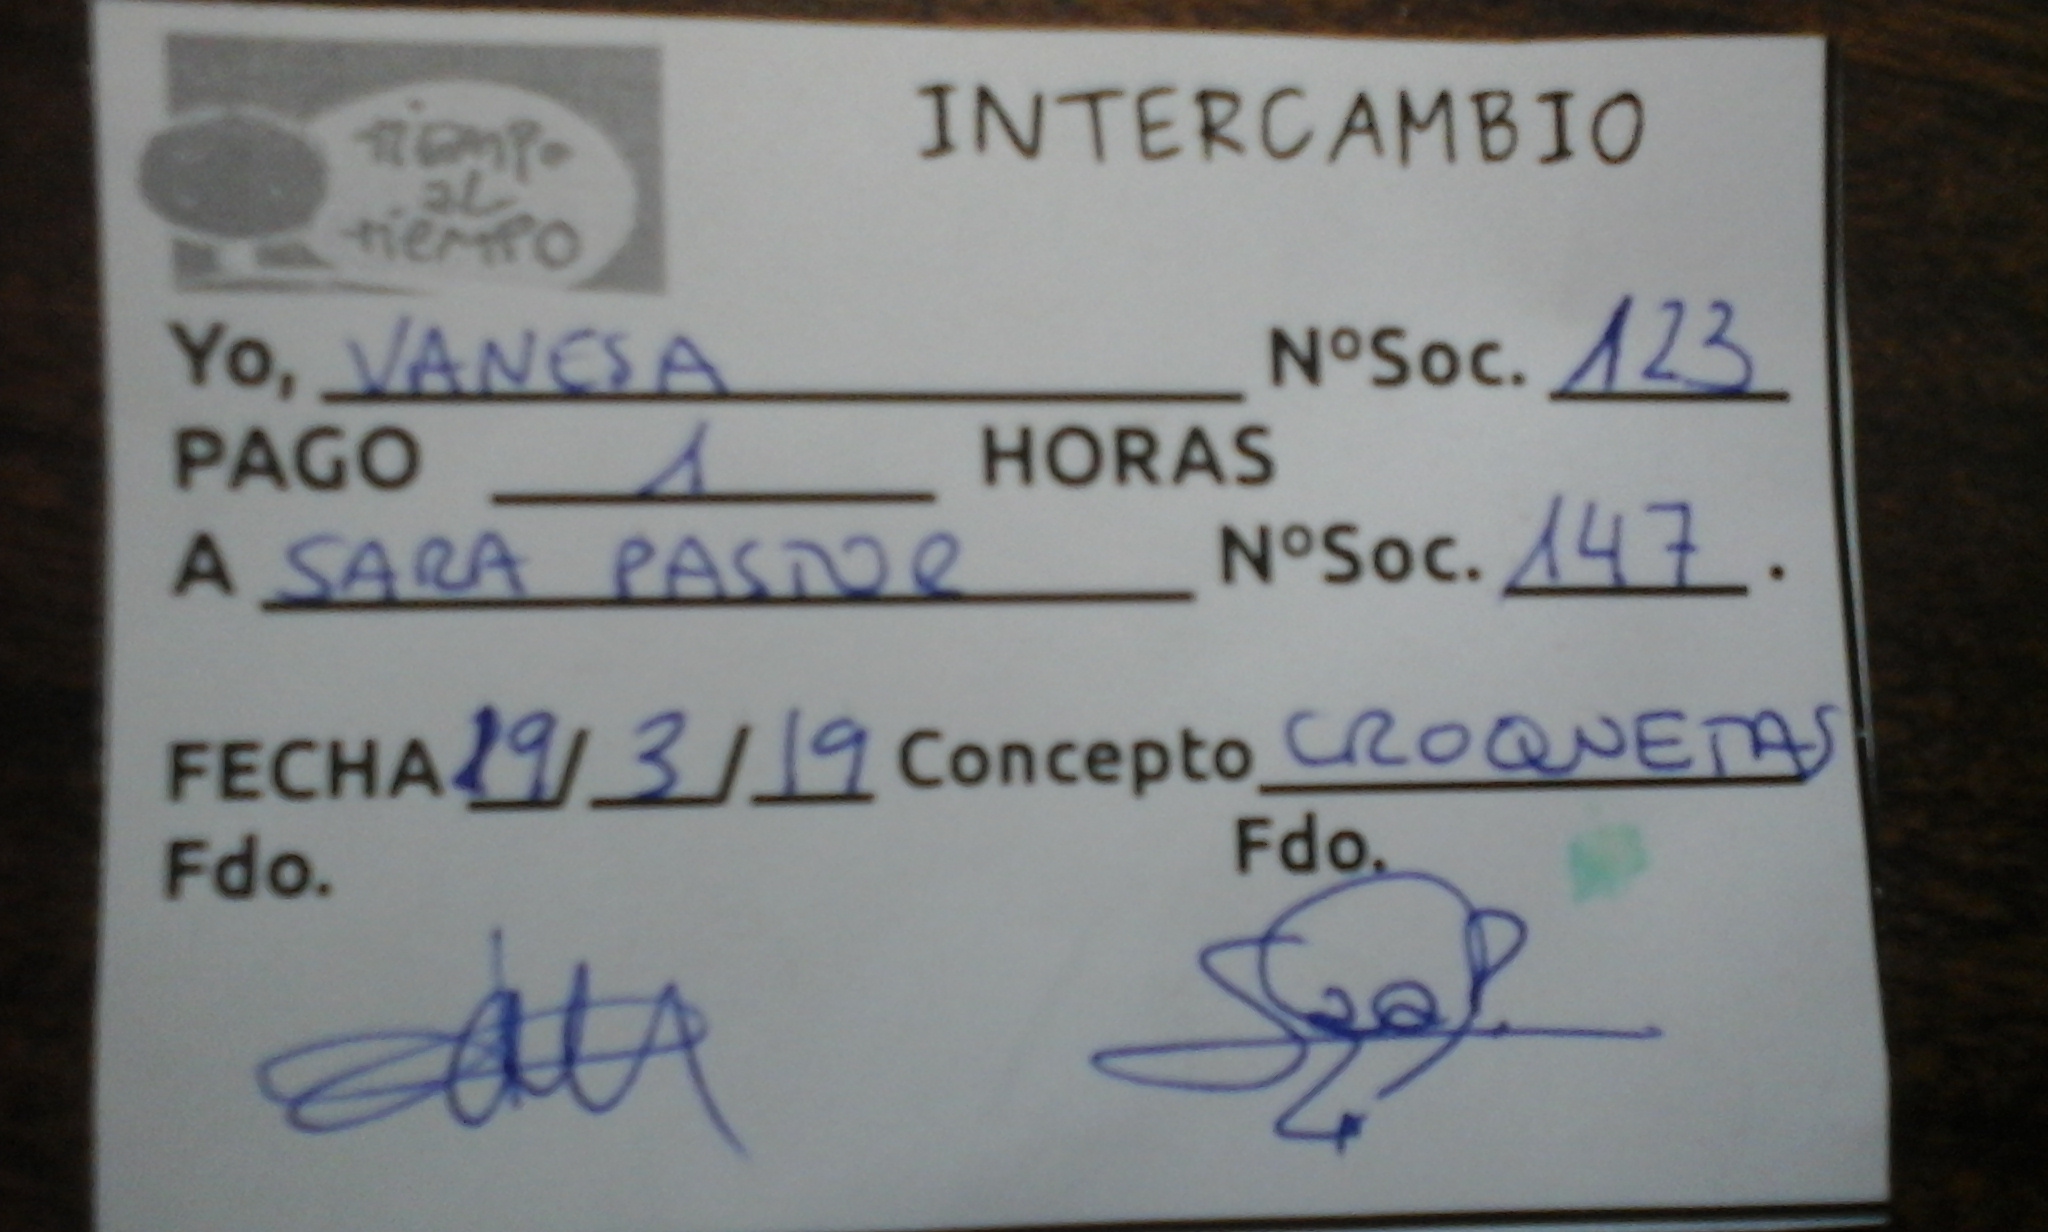 tiempo
al
tiempo
INTERCAMBIO
Yo, VANESA NºSoc. 123
PAGO 1 HORAS
A SARA PASTOR NºSoc. 147.
FECHA 19/3/19 Concepto CROQUETAS
Fdo. Fdo.